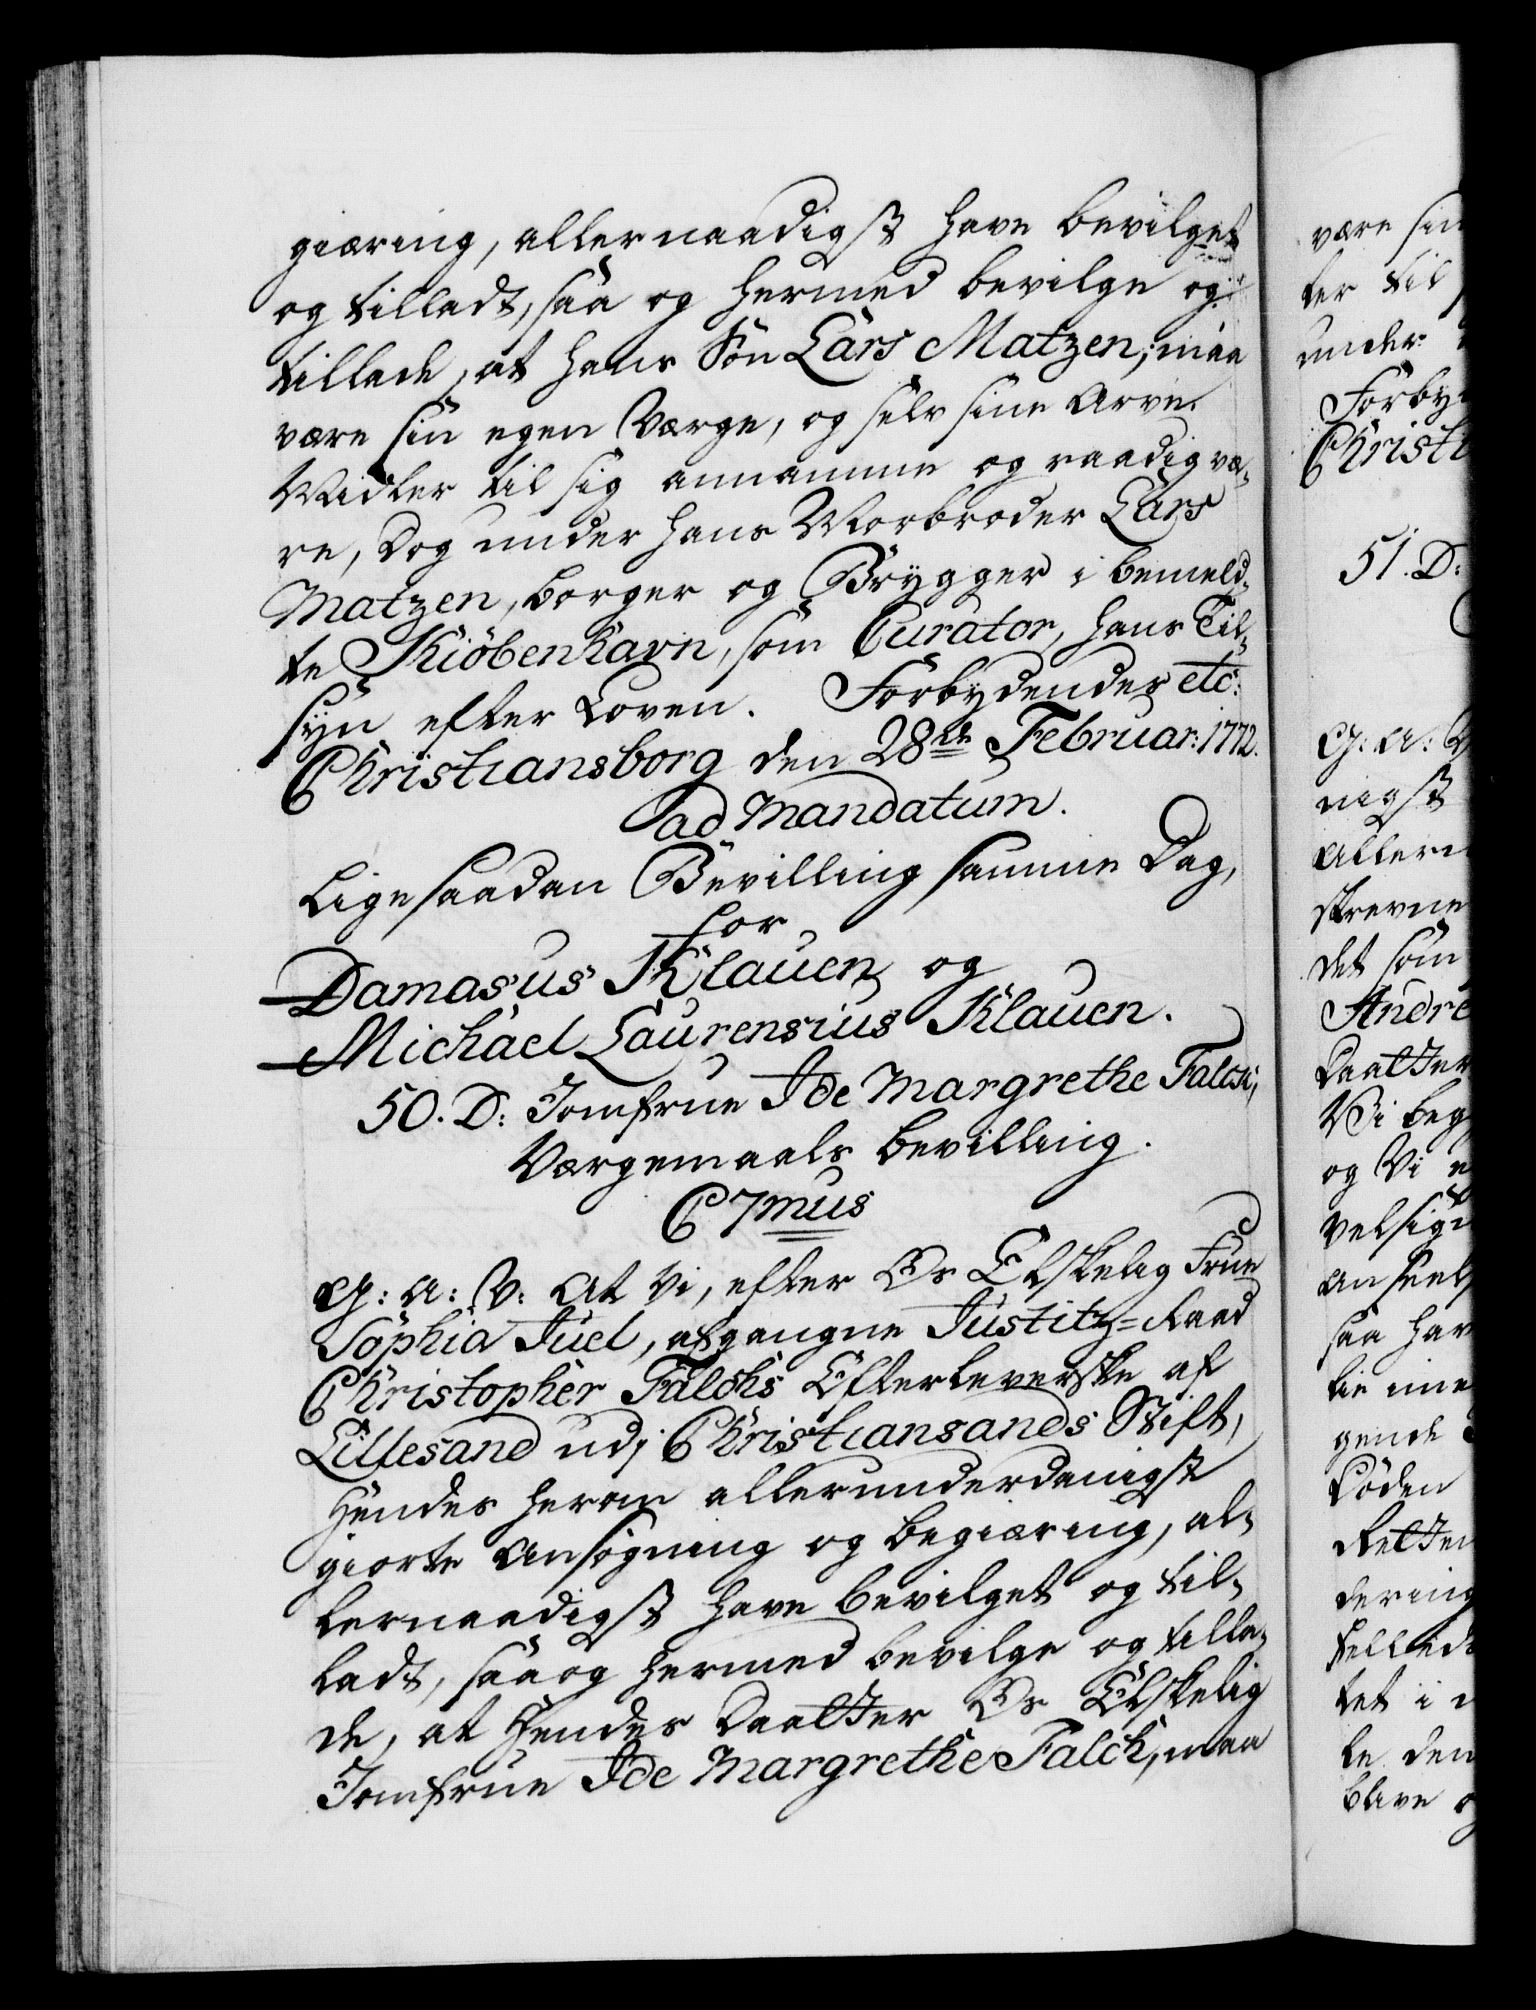 giæring, allernaadigst have bevilget
og tilladt, saa og hermed bevilge og
tillade, at hans Søn Lars Matzen, maa
være sin egen Værge, og selv sine Arve-
Midler til sig annamme og raadig væ-
re, Dog under hans Morbroder Lars
Matzen, borger og Brygger i bemeld-
te Kiöbenhavn, som Curator, hans Til-
syn efter Loven. Forbydendes etc:
Christiansborg den 28de Februar: 1772.
ad Mandatum.
Lige saadan Bevilling samme Dag,
for
Damasus Klauen og
Michael Laurensius Klauen.
50. D: Jomfrue Ide Margrethe Falck,
Værgemaals bevilling.
C 7mus
G: A: V: At Vi, efter Os Elskelig Frue
Sophia Juel, afgangne Justitz-Raad
Christopher Falchs Efterleverske af
Lillesand udj Christiansands Stift,
Hendes herom allerunderdanigst
giorte Ansøgning og begiæring, al-
lernaadigst have bevilget og til-
ladt, saa og hermed bevilge og tilla-
de, at Hendes Daatter Os Elskelig
Jomfrue Ide Margrethe Falck, maa
være
ter til
under
51. D:
G: A: V
nigst
skrevne
det som
Vi beg
og Vi
saa hav
gende
tet i
le den
blive